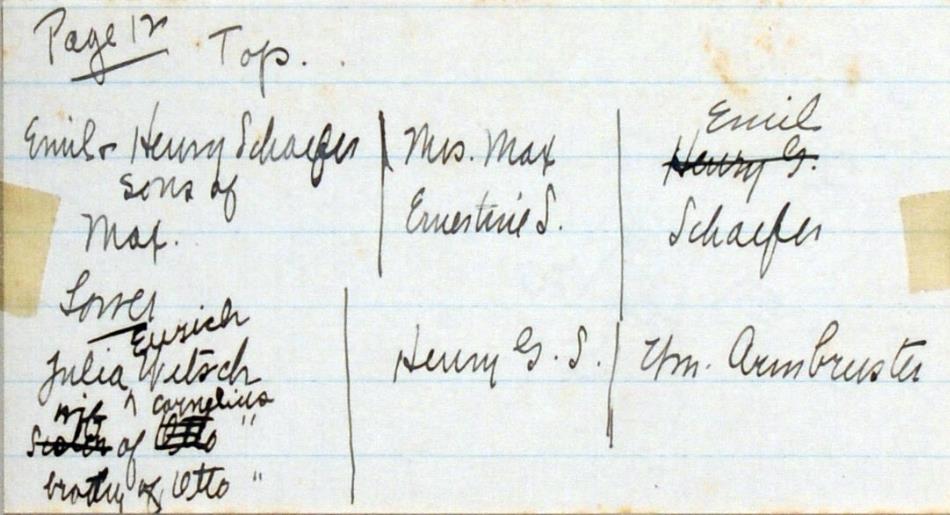 Page 12 Top.
Emil + Henry Schaefer
sons of
Max.
Mrs. Max
Ernestine S.
Emil
Henry G.
Schaefer
Lower
Julia ^ Emrich Vietsch
wife
Sister of Otto Cornelius "
brother of Otto "
Henry G. S.
Wm. Armbruster